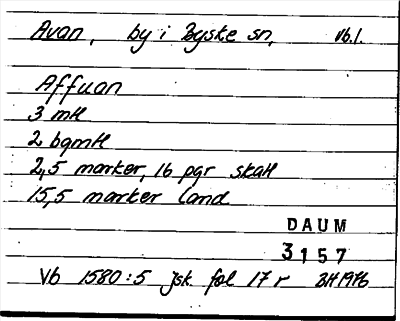 Avan, by i Byske sn, Vb.l.
Affuan
3 mtl
2 bgmtl
2,5 marker, 16 pgr skatt
15,5 marker land
DAUM
3157
Vb 1580:5 jsk fol 17 r BH 1976